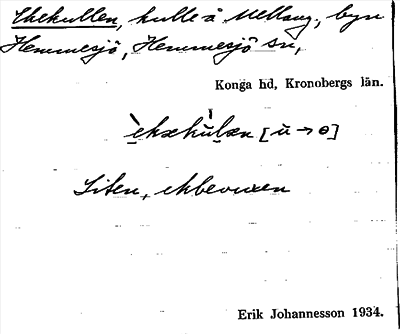 Ekekullen, kulle å Mellang., byn
Hemmesjö, Hemmesjö sn,
Konga hd, Kronobergs län.
èkækùlæn [ù → ɵ]
Liten, ekbevuxen
Erik Johannesson 1934.